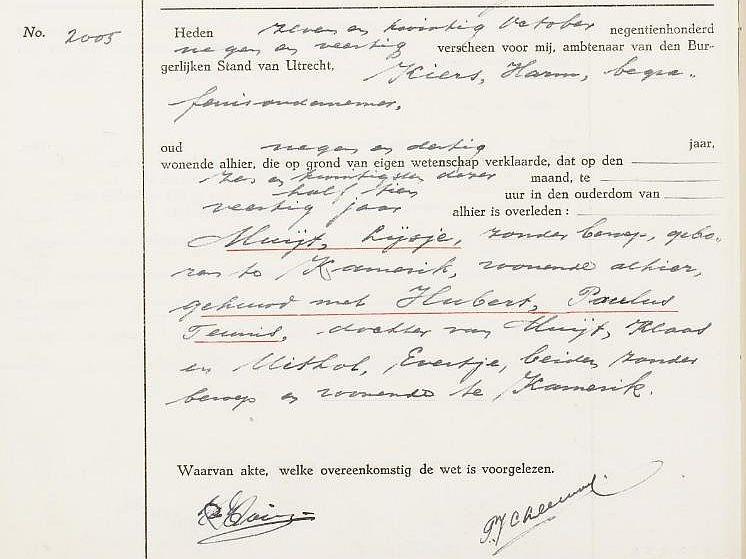 No. 2005
Heden zeven en twintig October negentienhonderd
negen en veertig verscheen voor mij, ambtenaar van den Bur-
gerlijken Stand van Utrecht, Kiers, Harm, begra-
fenisondernemer,
oud negen en dertig jaar,
wonende alhier, die op grond van eigen wetenschap verklaarde, dat op den
zes en twintigsten dezer maand, te
half tien uur in den ouderdom van
veertig jaar alhier is overleden :
Muijt, Lijsje, zonder beroep, gebo-
ren te Kamerik, wonende alhier,
gehuwd met Hubert, Paulus
Teunis, dochter van Muijt, Klaas
en Uithol, Evertje, beiden zonder
beroep en wonende te Kamerik.
Waarvan akte, welke overeenkomstig de wet is voorgelezen.